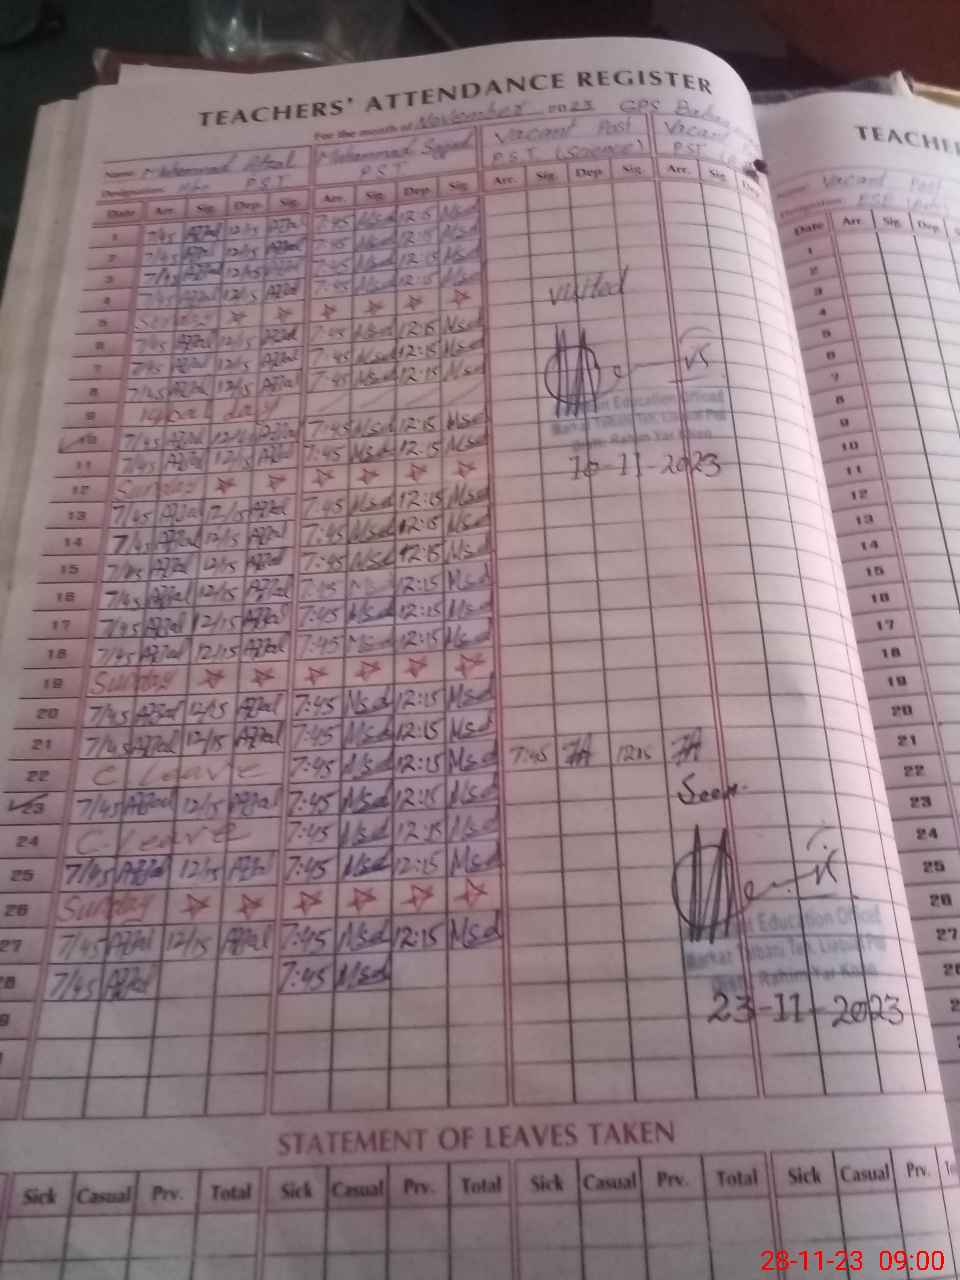 TEACHERS' ATTENDANCE REGISTER
For the month of November 2023 GPS
Name Muhammad Afzal Muhammad Sajjad Vacant Post Vacant
Designation P.S.T P.S.T P.S.T. (Science) PST
Date Arr. Sig. Dep. Sig. Arr. Sig. Dep. Sig. Arr. Sig. Dep. Sig. Arr. Sig. Dep.
1 7/45 Afzal 12/15 Afzal 7:45 Msd 12:15 Msd
2 7/45 Afzal 12/15 Afzal 7:45 Msd 12:15 Msd
3 7/45 Afzal 12/15 Afzal 7:45 Msd 12:15 Msd
4 7/45 Afzal 12/15 Afzal 7:45 Msd 12:15 Msd
visited
5 Sunday
6 7/45 Afzal 12/15 Afzal 7:45 Msd 12:15 Msd
7 7/45 Afzal 12/15 Afzal 7:45 Msd 12:15 Msd
8 7/45 Afzal 12/15 Afzal 7:45 Msd 12:15 Msd
9 Iqbal day
Education Officer
Markaz Tarbani Teh. Liaqat Pur
Distt. Rahim Yar Khan
10 7/45 Afzal 12/15 Afzal 7:45 Msd 12:15 Msd
11 7/45 Afzal 12/15 Afzal 7:45 Msd 12:15 Msd
10-11-2023
12 Sunday
13 7/45 Afzal 12/15 Afzal 7:45 Msd 12:15 Msd
14 7/45 Afzal 12/15 Afzal 7:45 Msd 12:15 Msd
15 7/45 Afzal 12/15 Afzal 7:45 Msd 12:15 Msd
16 7/45 Afzal 12/15 Afzal 7:45 Msd 12:15 Msd
17 7/45 Afzal 12/15 Afzal 7:45 Msd 12:15 Msd
18 7/45 Afzal 12/15 Afzal 7:45 Msd 12:15 Msd
19 Sunday
20 7/45 Afzal 12/15 Afzal 7:45 Msd 12:15 Msd
21 7/45 Afzal 12/15 Afzal 7:45 Msd 12:15 Msd
22 C Leave 7:45 Msd 12:15 Msd 7:45 12:15
23 7/45 Afzal 12/15 Afzal 7:45 Msd 12:15 Msd
Seen.
24 C. Leave 7:45 Msd 12:15 Msd
25 7/45 Afzal 12/15 Afzal 7:45 Msd 12:15 Msd
26 Sunday
27 7/45 Afzal 12/15 Afzal 7:45 Msd 12:15 Msd
Education Officer
Markaz Tarbani Teh. Liaqat Pur
Distt. Rahim Yar Khan
28 7/45 Afzal 7:45 Msd
23-11-2023
STATEMENT OF LEAVES TAKEN
Sick Casual Prv. Total Sick Casual Prv. Total Sick Casual Prv. Total Sick Casual Prv.
TEACHE
Name Vacant Post
Designation
Date Arr. Sig. Dep.
1
2
3
4
5
6
7
8
9
10
11
12
13
14
15
16
17
18
19
20
21
22
23
24
25
26
27
28-11-23 09:00